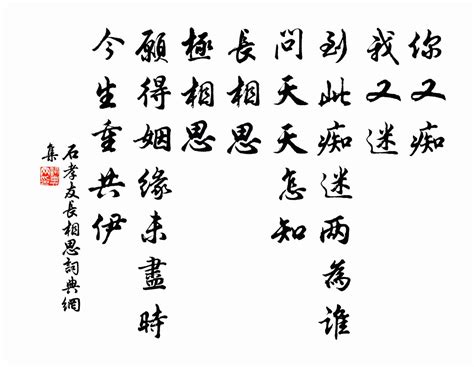 你又痴
我又迷
到此痴迷两為誰
問天天怎知
長相思
極相思
願得姻緣未盡時
今生重共伊
石孝友長相思詞典網
集